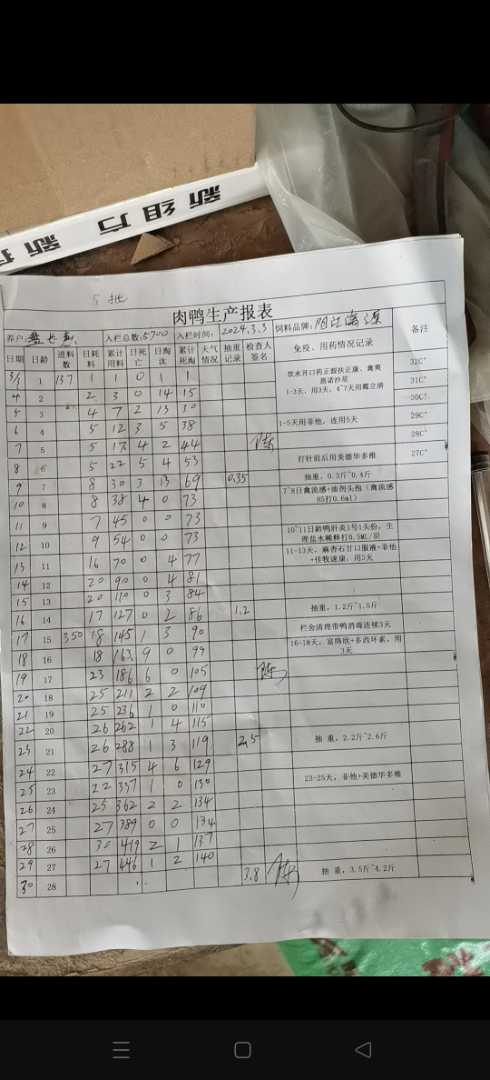 新组方 新
5批
肉鸭生产报表
养户: 入栏总数:5700 入栏时间: 2024.3.3 饲料品牌:阳江海
日期 日龄 进料数 日耗料 累计用料 日死亡 日淘汰 累计死淘 天气情况 抽重记录 检查人签名 免疫、用药情况记录 备注
3/3 1 137 1 1 0 1 1 饮水开口药正振扶正康、禽爽 恩诺沙星 32C°
4 2 2 3 0 14 15 1-3天,用3天,4-7天用戴立清 31C°
5 3 4 7 2 13 30 30C°
6 4 5 12 3 5 38 1-5天用非他,连用5天 29C°
7 5 5 17 4 2 44 陈 28C°
8 6 5 22 5 4 53 打针前后用美德华多维 27C°
9 7 8 30 3 13 69 0.35 抽重,0.3斤~0.4斤
10 8 8 38 4 0 73 7~8日禽流感+油剂头孢(禽流感H5打0.6ml)
11 9 7 45 0 0 73
12 10 9 54 0 0 73 10~11日龄鸭肝炎1号1头份,生理盐水稀释打0.5ML/羽
13 11 16 70 0 4 77 11-13天,麻杏石甘口服液+非他+佳牧速康,用3天
14 12 20 90 0 4 81
15 13 20 110 0 3 84
16 14 17 127 0 2 86 1.2 抽重,1.2斤~1.5斤
17 15 350 18 145 1 3 90 栏舍清理带鸭消毒连续3天
18 16 18 163 9 0 99 16-18天,富隆欣+多西环素,用3天
19 17 23 186 6 0 105 陈
20 18 25 211 2 2 109
21 19 25 236 1 0 110
22 20 26 262 1 4 115
23 21 26 288 1 3 119 2.5 抽重,2.2斤~2.6斤
24 22 27 315 4 6 129
25 23 22 337 1 0 130 23-25天,非他+美德华多维
26 24 25 362 2 2 134
27 25 27 389 0 0 134
28 26 30 419 2 1 137
29 27 27 446 1 2 140
30 28 3.8 陈 抽重,3.5斤~4.2斤